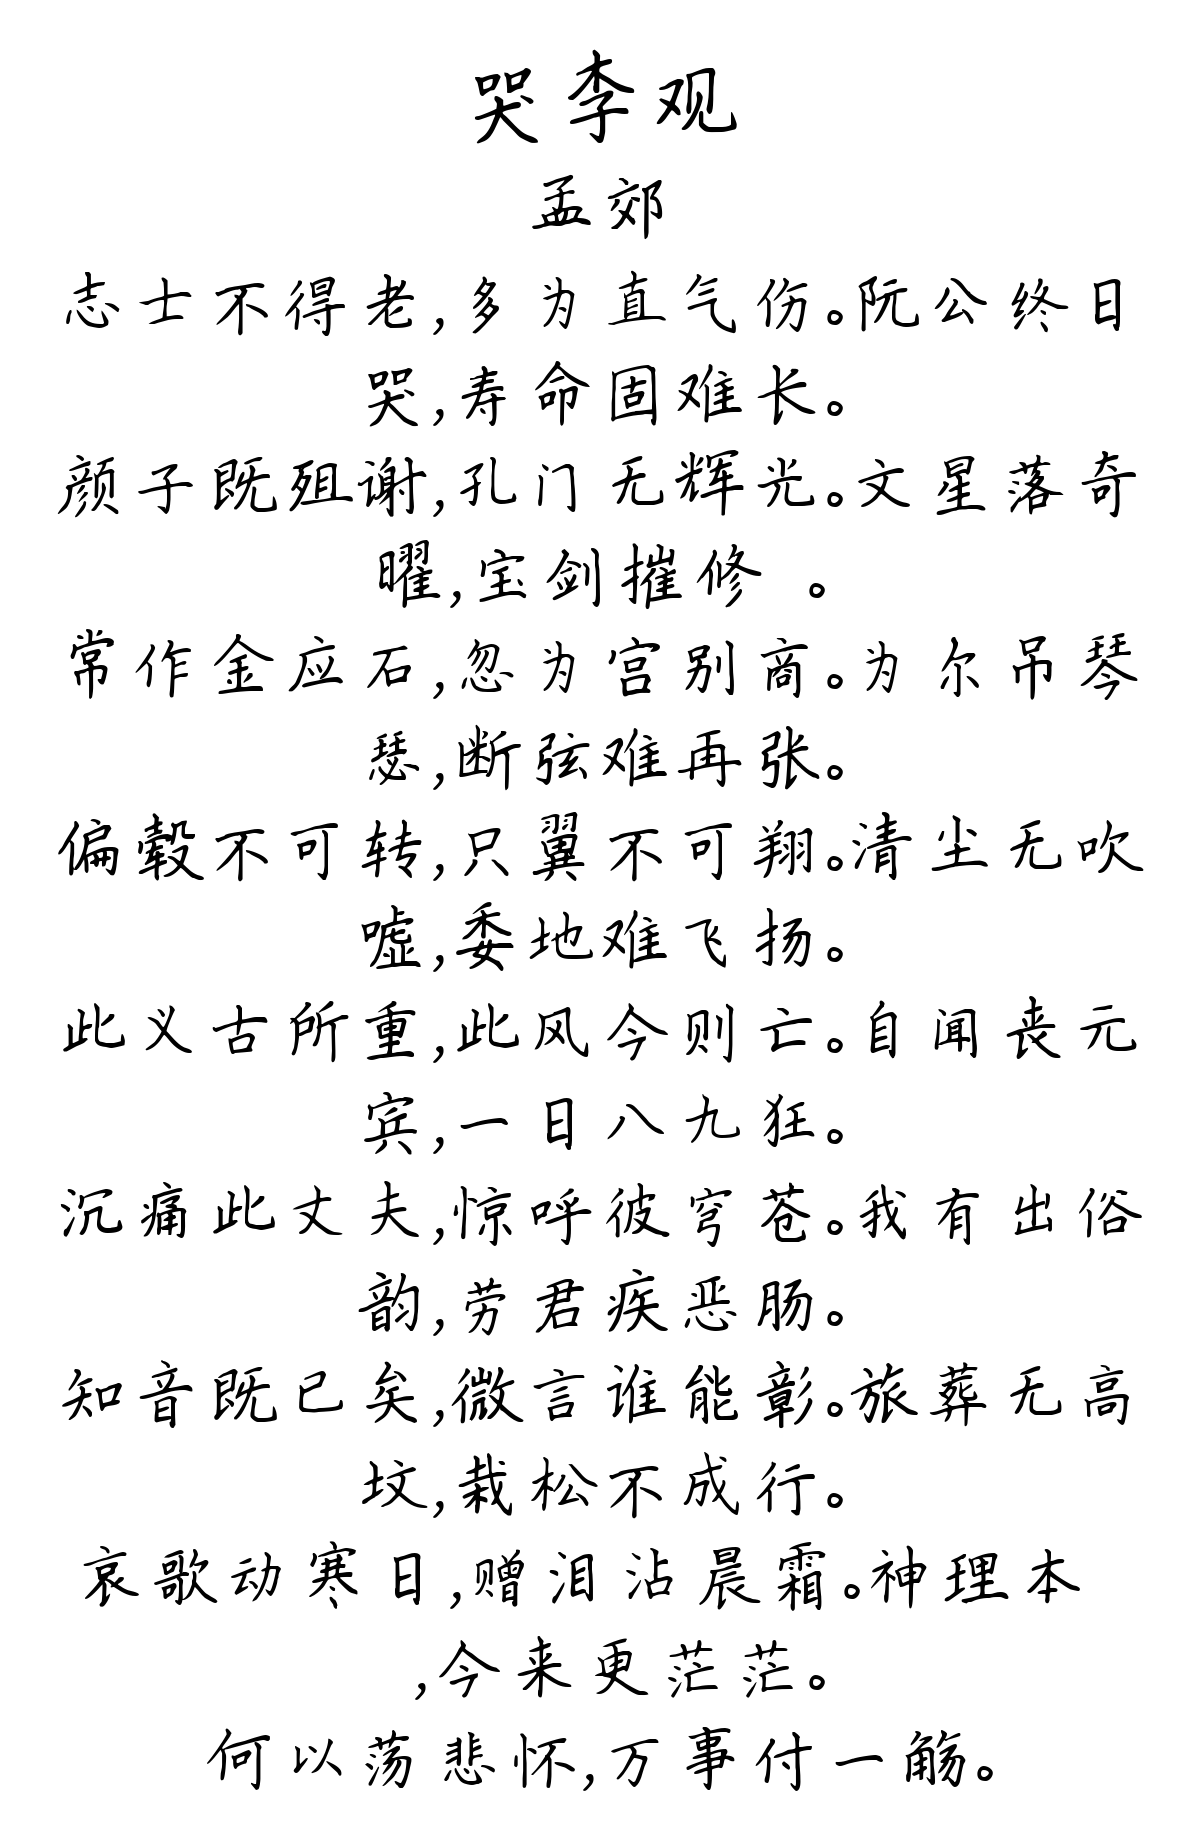 哭李观
孟郊
志士不得老,多为直气伤。阮公终日
哭,寿命固难长。
颜子既殂谢,孔门无辉光。文星落奇
曜,宝剑摧修 。
常作金应石,忽为宫别商。为尔吊琴
瑟,断弦难再张。
偏毂不可转,只翼不可翔。清尘无吹
嘘,委地难飞扬。
此义古所重,此风今则亡。自闻丧元
宾,一日八九狂。
沉痛此丈夫,惊呼彼穹苍。我有出俗
韵,劳君疾恶肠。
知音既已矣,微言谁能彰。旅葬无高
坟,栽松不成行。
哀歌动寒日,赠泪沾晨霜。神理本
,今来更茫茫。
何以荡悲怀,万事付一觞。